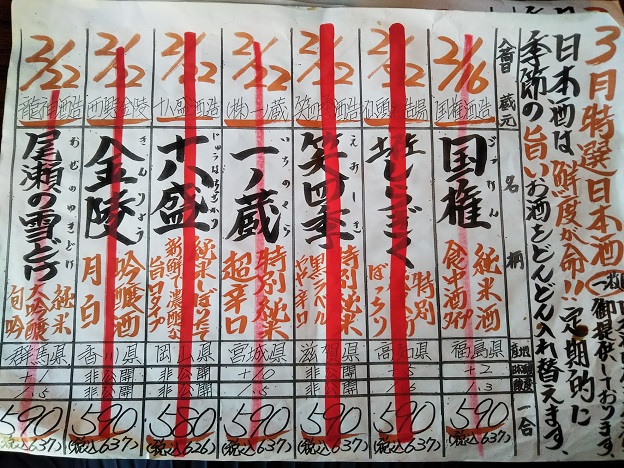 3月特選日本酒
日本酒は鮮度が命!!定期的に
季節の旨いお酒をどんどん入れ替えます。
御提供しております。
入荷日
蔵元
名柄
産地
一合
2/16
国権酒造
国権
こっけん
純米酒
食中酒タイプ
福島県
+2
1.3
590
(税込637)
2/22
特別
590
(税込637)
2/22
笑四季
えみしき
特別純米
黒ラベル
やや辛口
滋賀県
非公開
非公開
590
(税込637)
2/22
(株)一ノ蔵
一ノ蔵
いちのくら
特別純米
超辛口
宮城県
+10
1.5
590
(税込637)
2/22
十八盛酒造
十八盛
じゅうはちざかり
純米しぼりたて
新鮮で濃醇な
旨口タイプ
岡山県
非公開
非公開
580
(税込626)
2/22
西野金陵
金陵
きんりょう
吟醸酒
月白
香川県
非公開
非公開
590
(税込637)
2/22
龍神酒造
尾瀬の雪どけ
おぜのゆきどけ
純米
大吟醸
旬吟
群馬県
+1
1.5
590
(税込637)